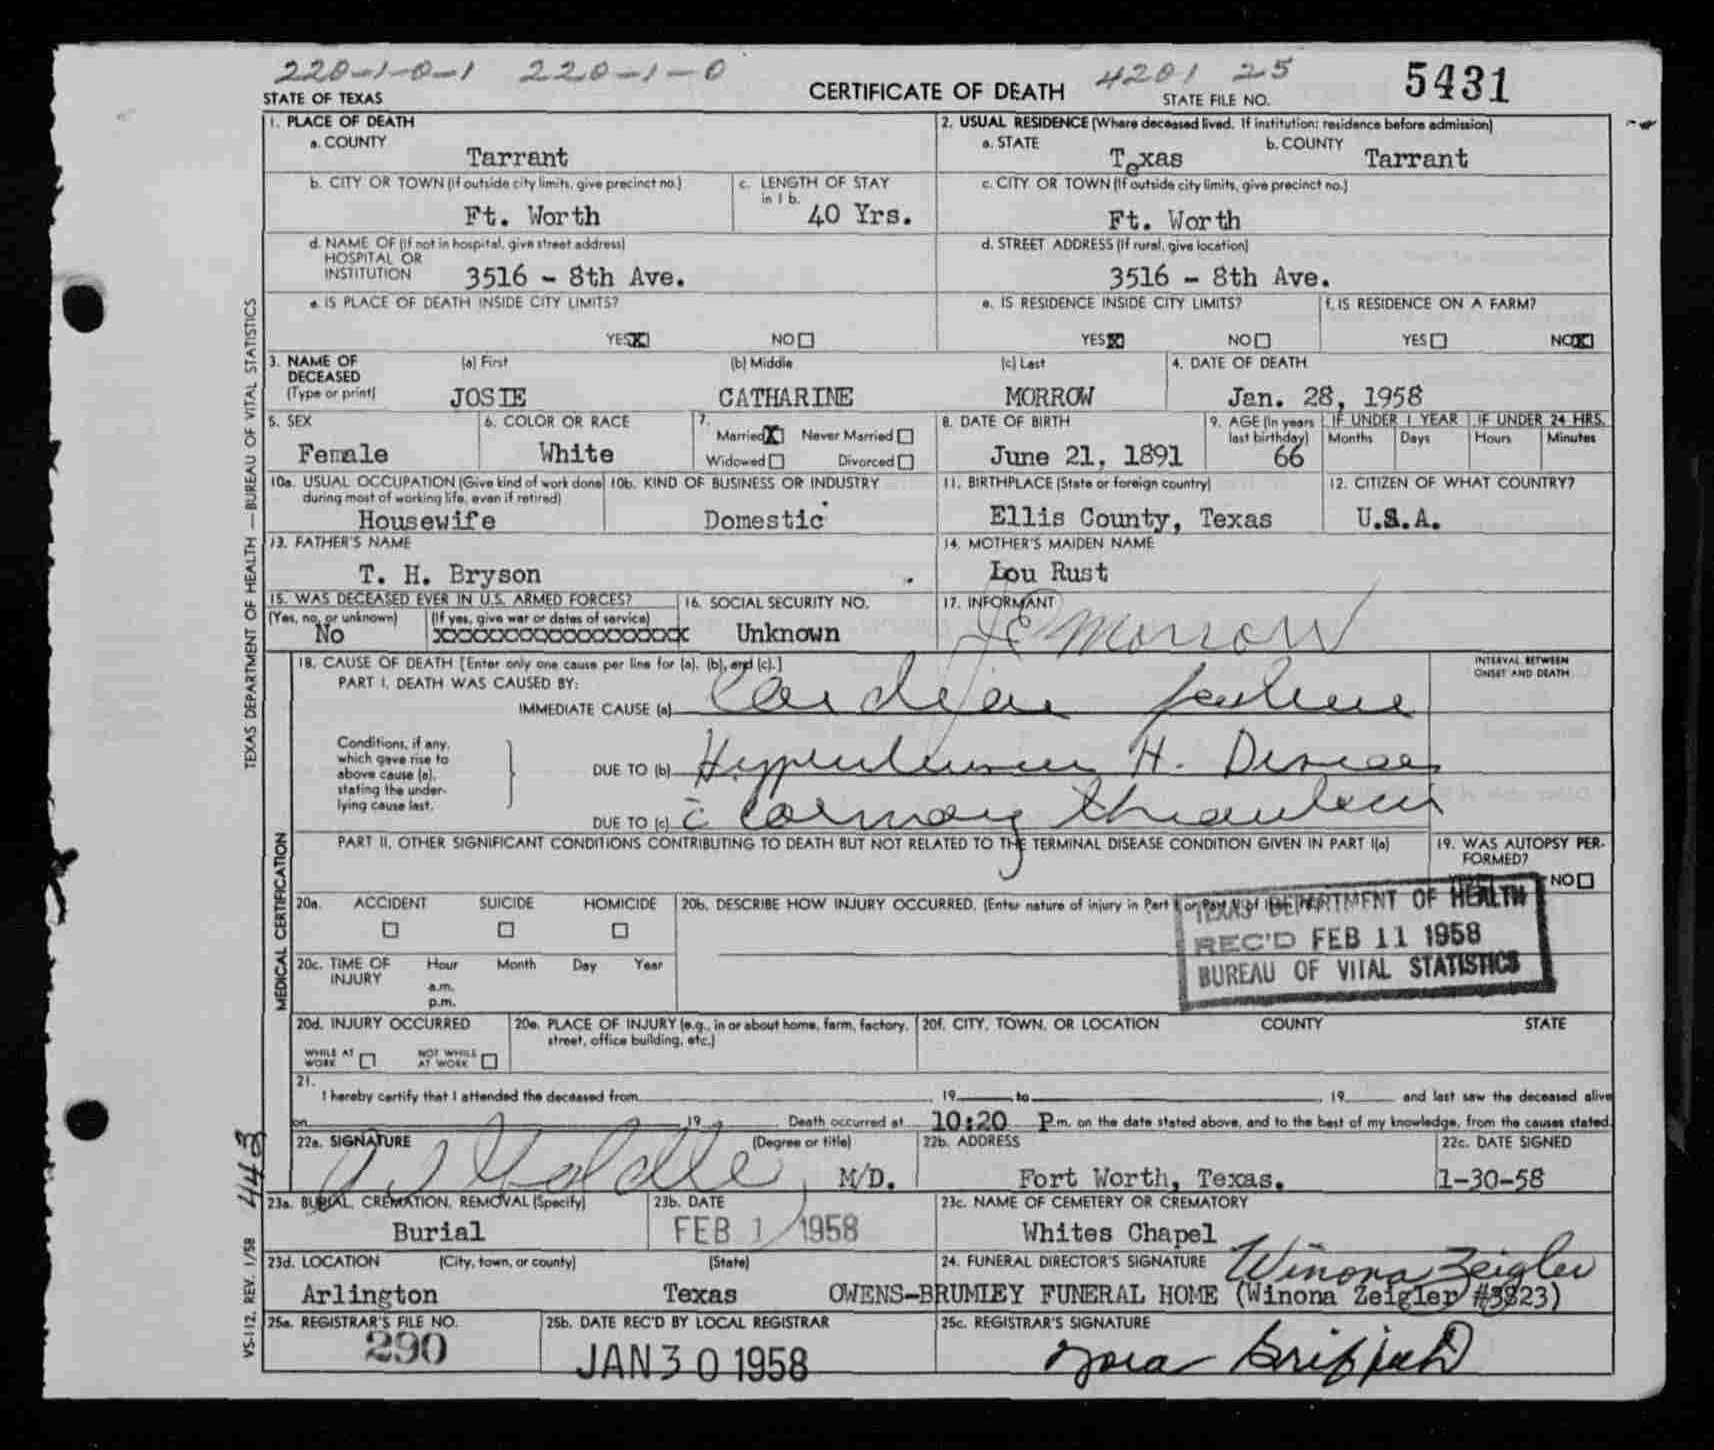 220-1-0-1 220-1-0 4201 25
STATE OF TEXAS CERTIFICATE OF DEATH STATE FILE NO. 5431
1. PLACE OF DEATH 2. USUAL RESIDENCE (Where deceased lived. If institution: residence before admission)
a. COUNTY Tarrant a. STATE Texas b. COUNTY Tarrant
b. CITY OR TOWN (If outside city limits, give precinct no.) c. LENGTH OF STAY in 1 b. c. CITY OR TOWN (If outside city limits, give precinct no.)
Ft. Worth 40 Yrs. Ft. Worth
d. NAME OF (If not in hospital, give street address) HOSPITAL OR INSTITUTION d. STREET ADDRESS (If rural, give location)
3516 - 8th Ave. 3516 - 8th Ave.
e. IS PLACE OF DEATH INSIDE CITY LIMITS? e. IS RESIDENCE INSIDE CITY LIMITS? f. IS RESIDENCE ON A FARM?
YES X NO YES X NO YES NO X
3. NAME OF DECEASED (Type or print) (a) First (b) Middle (c) Last 4. DATE OF DEATH
JOSIE CATHARINE MORROW Jan. 28, 1958
5. SEX 6. COLOR OR RACE 7. 8. DATE OF BIRTH 9. AGE (In years last birthday) IF UNDER 1 YEAR IF UNDER 24 HRS.
Married X Never Married Months Days Hours Minutes
Female White Widowed Divorced June 21, 1891 66
10a. USUAL OCCUPATION (Give kind of work done during most of working life, even if retired) 10b. KIND OF BUSINESS OR INDUSTRY 11. BIRTHPLACE (State or foreign country) 12. CITIZEN OF WHAT COUNTRY?
Housewife Domestic Ellis County, Texas U.S.A.
13. FATHER'S NAME 14. MOTHER'S MAIDEN NAME
T. H. Bryson Lou Rust
15. WAS DECEASED EVER IN U.S. ARMED FORCES? 16. SOCIAL SECURITY NO. 17. INFORMANT
(Yes, no, or unknown) (If yes, give war or dates of service)
No xxxxxxxxxxxxxxxxxx Unknown Morrow
18. CAUSE OF DEATH [Enter only one cause per line for (a), (b), and (c).] INTERVAL BETWEEN ONSET AND DEATH
PART I. DEATH WAS CAUSED BY:
IMMEDIATE CAUSE (a) Cardiac failure
Conditions, if any, which gave rise to above cause (a), stating the underlying cause last.
DUE TO (b) Hypertensive H. Disease
DUE TO (c) c̄ Coronary thrombosis
PART II. OTHER SIGNIFICANT CONDITIONS CONTRIBUTING TO DEATH BUT NOT RELATED TO THE TERMINAL DISEASE CONDITION GIVEN IN PART I(a) 19. WAS AUTOPSY PERFORMED?
NO
20a. ACCIDENT SUICIDE HOMICIDE 20b. DESCRIBE HOW INJURY OCCURRED. (Enter nature of injury in Part I or Part II of item
TEXAS DEPARTMENT OF HEALTH
REC'D FEB 11 1958
BUREAU OF VITAL STATISTICS
20c. TIME OF INJURY Hour Month Day Year
a.m.
p.m.
20d. INJURY OCCURRED 20e. PLACE OF INJURY (e.g., in or about home, farm, factory, street, office building, etc.) 20f. CITY, TOWN, OR LOCATION COUNTY STATE
WHILE AT WORK NOT WHILE AT WORK
21.
I hereby certify that I attended the deceased from , 19 to , 19 and last saw the deceased alive
on 19 Death occurred at 10:20 P.m. on the date stated above, and to the best of my knowledge, from the causes stated.
22a. SIGNATURE (Degree or title) 22b. ADDRESS 22c. DATE SIGNED
M/D. Fort Worth, Texas. 1-30-58
23a. BURIAL, CREMATION, REMOVAL (Specify) 23b. DATE 23c. NAME OF CEMETERY OR CREMATORY
Burial FEB 1 1958 Whites Chapel
23d. LOCATION (City, town, or county) (State) 24. FUNERAL DIRECTOR'S SIGNATURE Winona Zeigler
Arlington Texas OWENS-BRUMLEY FUNERAL HOME (Winona Zeigler #3823)
25a. REGISTRAR'S FILE NO. 25b. DATE REC'D BY LOCAL REGISTRAR 25c. REGISTRAR'S SIGNATURE
290 JAN 30 1958
TEXAS DEPARTMENT OF HEALTH — BUREAU OF VITAL STATISTICS
MEDICAL CERTIFICATION
VS-112, REV. 1/58 443